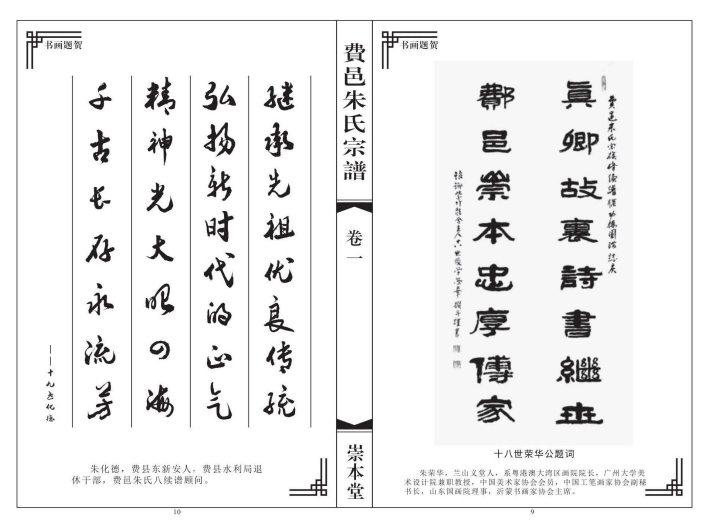 书画题贺
真卿故里詩書繼世
鄪邑崇本忠厚傳家
十八世荣华公题词
朱荣华，兰山义堂人，系粤港澳大湾区画院院长，广州大学美
术设计院兼职教授，中国美术家协会会员，中国工笔画家协会副秘
书长，山东国画院理事，沂蒙书画家协会主席。
9
費邑朱氏宗譜
卷一
崇本堂
书画题贺
继承先祖优良传统
弘扬新时代的正气
精神光大昭四海
千古长存永流芳
——十九世化德
朱化德，费县东新安人。费县水利局退
休干部，费邑朱氏八续谱顾问。
10